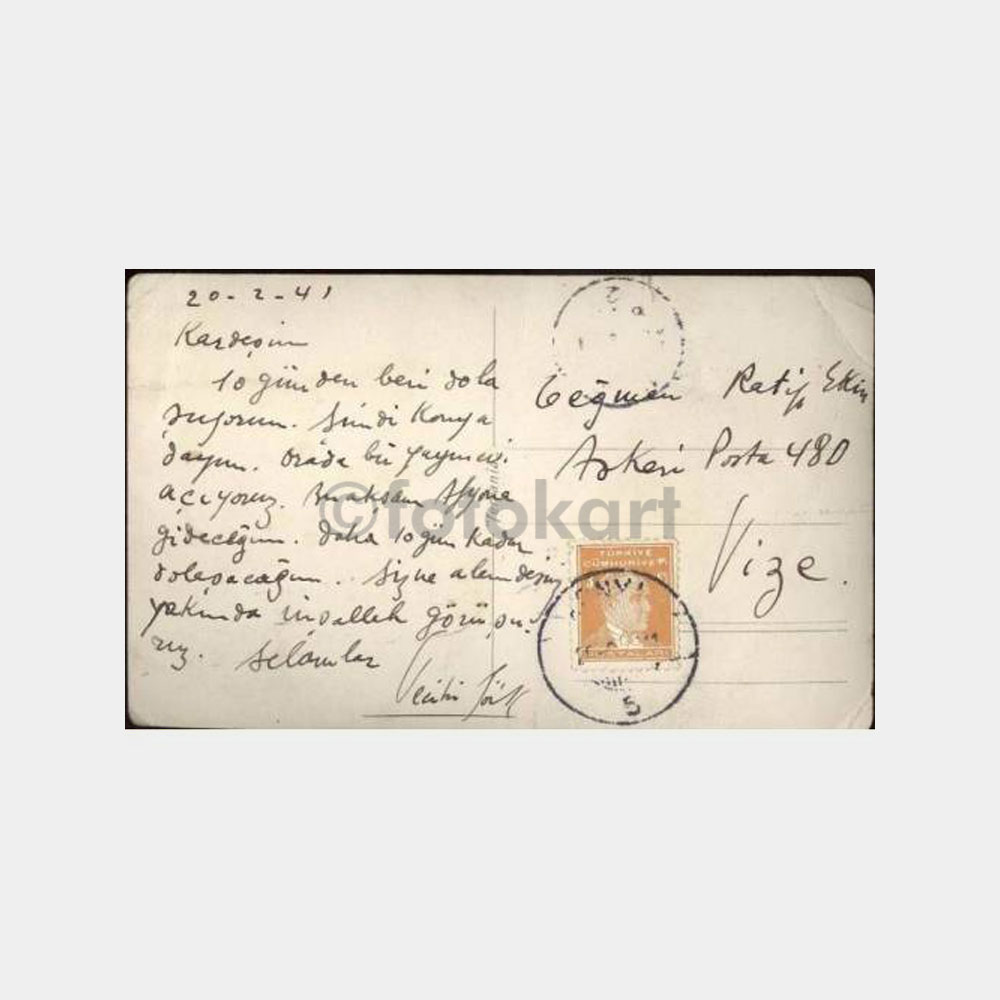 20-2-41
Kardeşim
10 günden beri dola
şıyorum. Şimdi Konya
dayım. Orada bir yayınevi
açıyoruz. Bu akşam Afyona
gideceğim. Daha 10 gün kadar
dolaşacağım.. Sizne alemdesiniz
yakında inşallah görüşü-
rüz. Selâmlar
Teğmen Ratip Ekin
Askeri Posta 480
Vize.
TÜRKİYE
CÜMHURİYETİ
POSTALARI
©fotokart